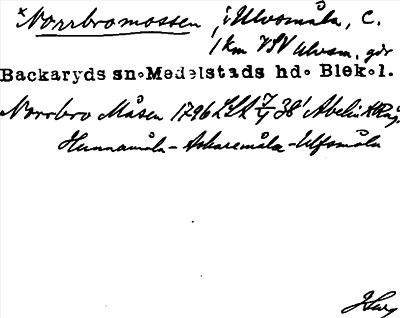 *Norrbromossen, i Ulvsmåla, C.
1 km VSV Ulvsm. gdr
Backaryds sn. Medelstads hd. Blek.l.
Norrbro Måsen 1796 LSA 38 Abelin
Hunnamåla - Askaremåla - Ulfsmåla